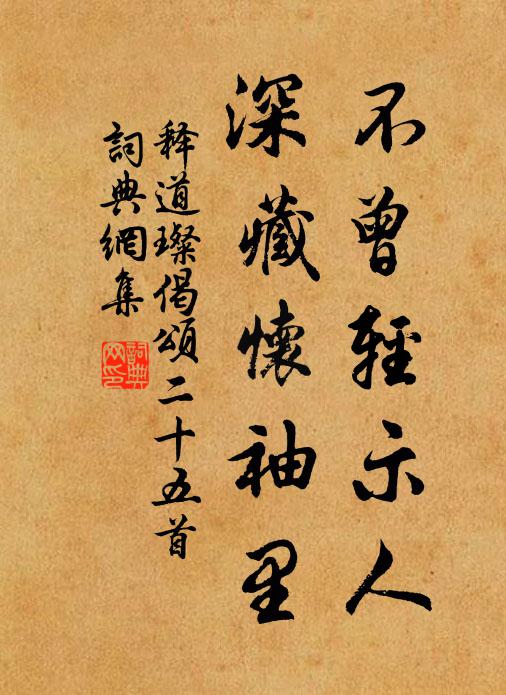 不曾輕示人
深藏懷袖里
释道璨偈頌二十五首
詞典網集
詞典網印